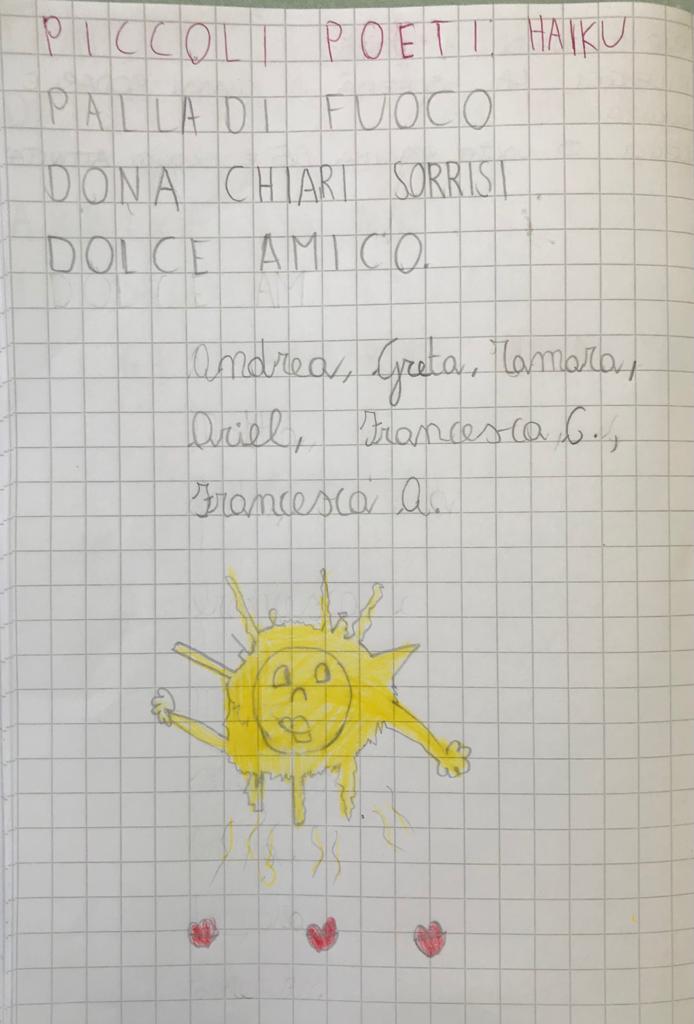 PICCOLI POETI: HAIKU
PALLA DI FUOCO
DONA CHIARI SORRISI
DOLCE AMICO.
Andrea, Greta, Tamara,
Ariel, Francesca C.,
Francesca A.